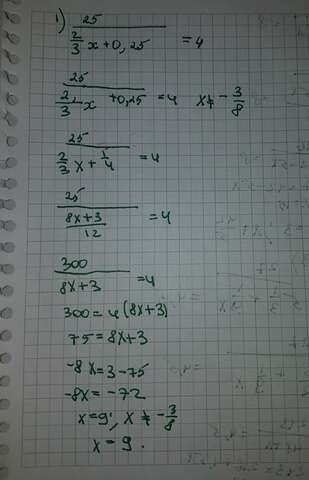 1) 25
2/3 x + 0,25 = 4
25
2/3 x + 0,25 = 4 x ≠ - 3/8
25
2/3 x + 1/4 = 4
25
8x+3
12 = 4
300
8x+3 = 4
300 = 4 (8x+3)
75 = 8x+3
-8x = 3-75
-8x = -72
x = 9, x ≠ - 3/8
x = 9.